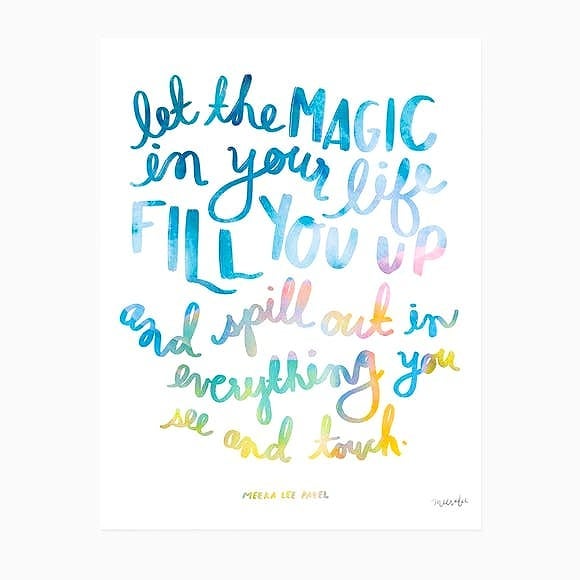 let the MAGIC
in your life
FILL YOU UP
and spill out in
everything you
see and touch.
MEERA LEE PATEL